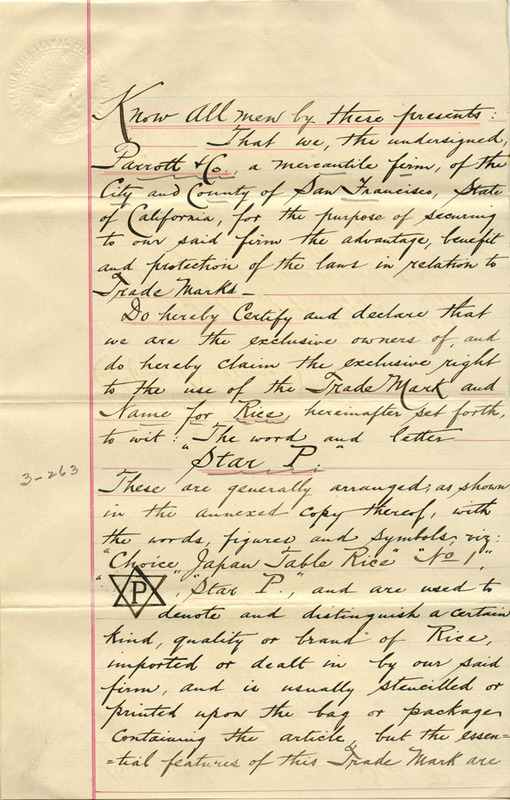 Know All men by these presents:
That we, the undersigned,
Parrott & Co., a mercantile firm, of the
City and County of San Francisco, State
of California, for the purpose of securing
to our said firm the advantage, benefit
and protection of the laws in relation to
Trade Marks—
Do hereby Certify and declare that
we are the exclusive owners of, and
do hereby claim the exclusive right
to the use of the Trade Mark and
Name for Rice, hereinafter set forth,
to wit: "The word and letter
Star P."
3-263
These are generally arranged, as shown
in the annexed copy thereof, with
the words, figures and symbols, viz:
"Choice Japan Table Rice" "No 1",
" P ", "Star P.", and are used to
denote and distinguish a certain
kind, quality or brand of Rice,
imported or dealt in by our said
firm, and is usually stencilled or
printed upon the bag or package
Containing the article, but the essen=
=tial features of this Trade Mark are